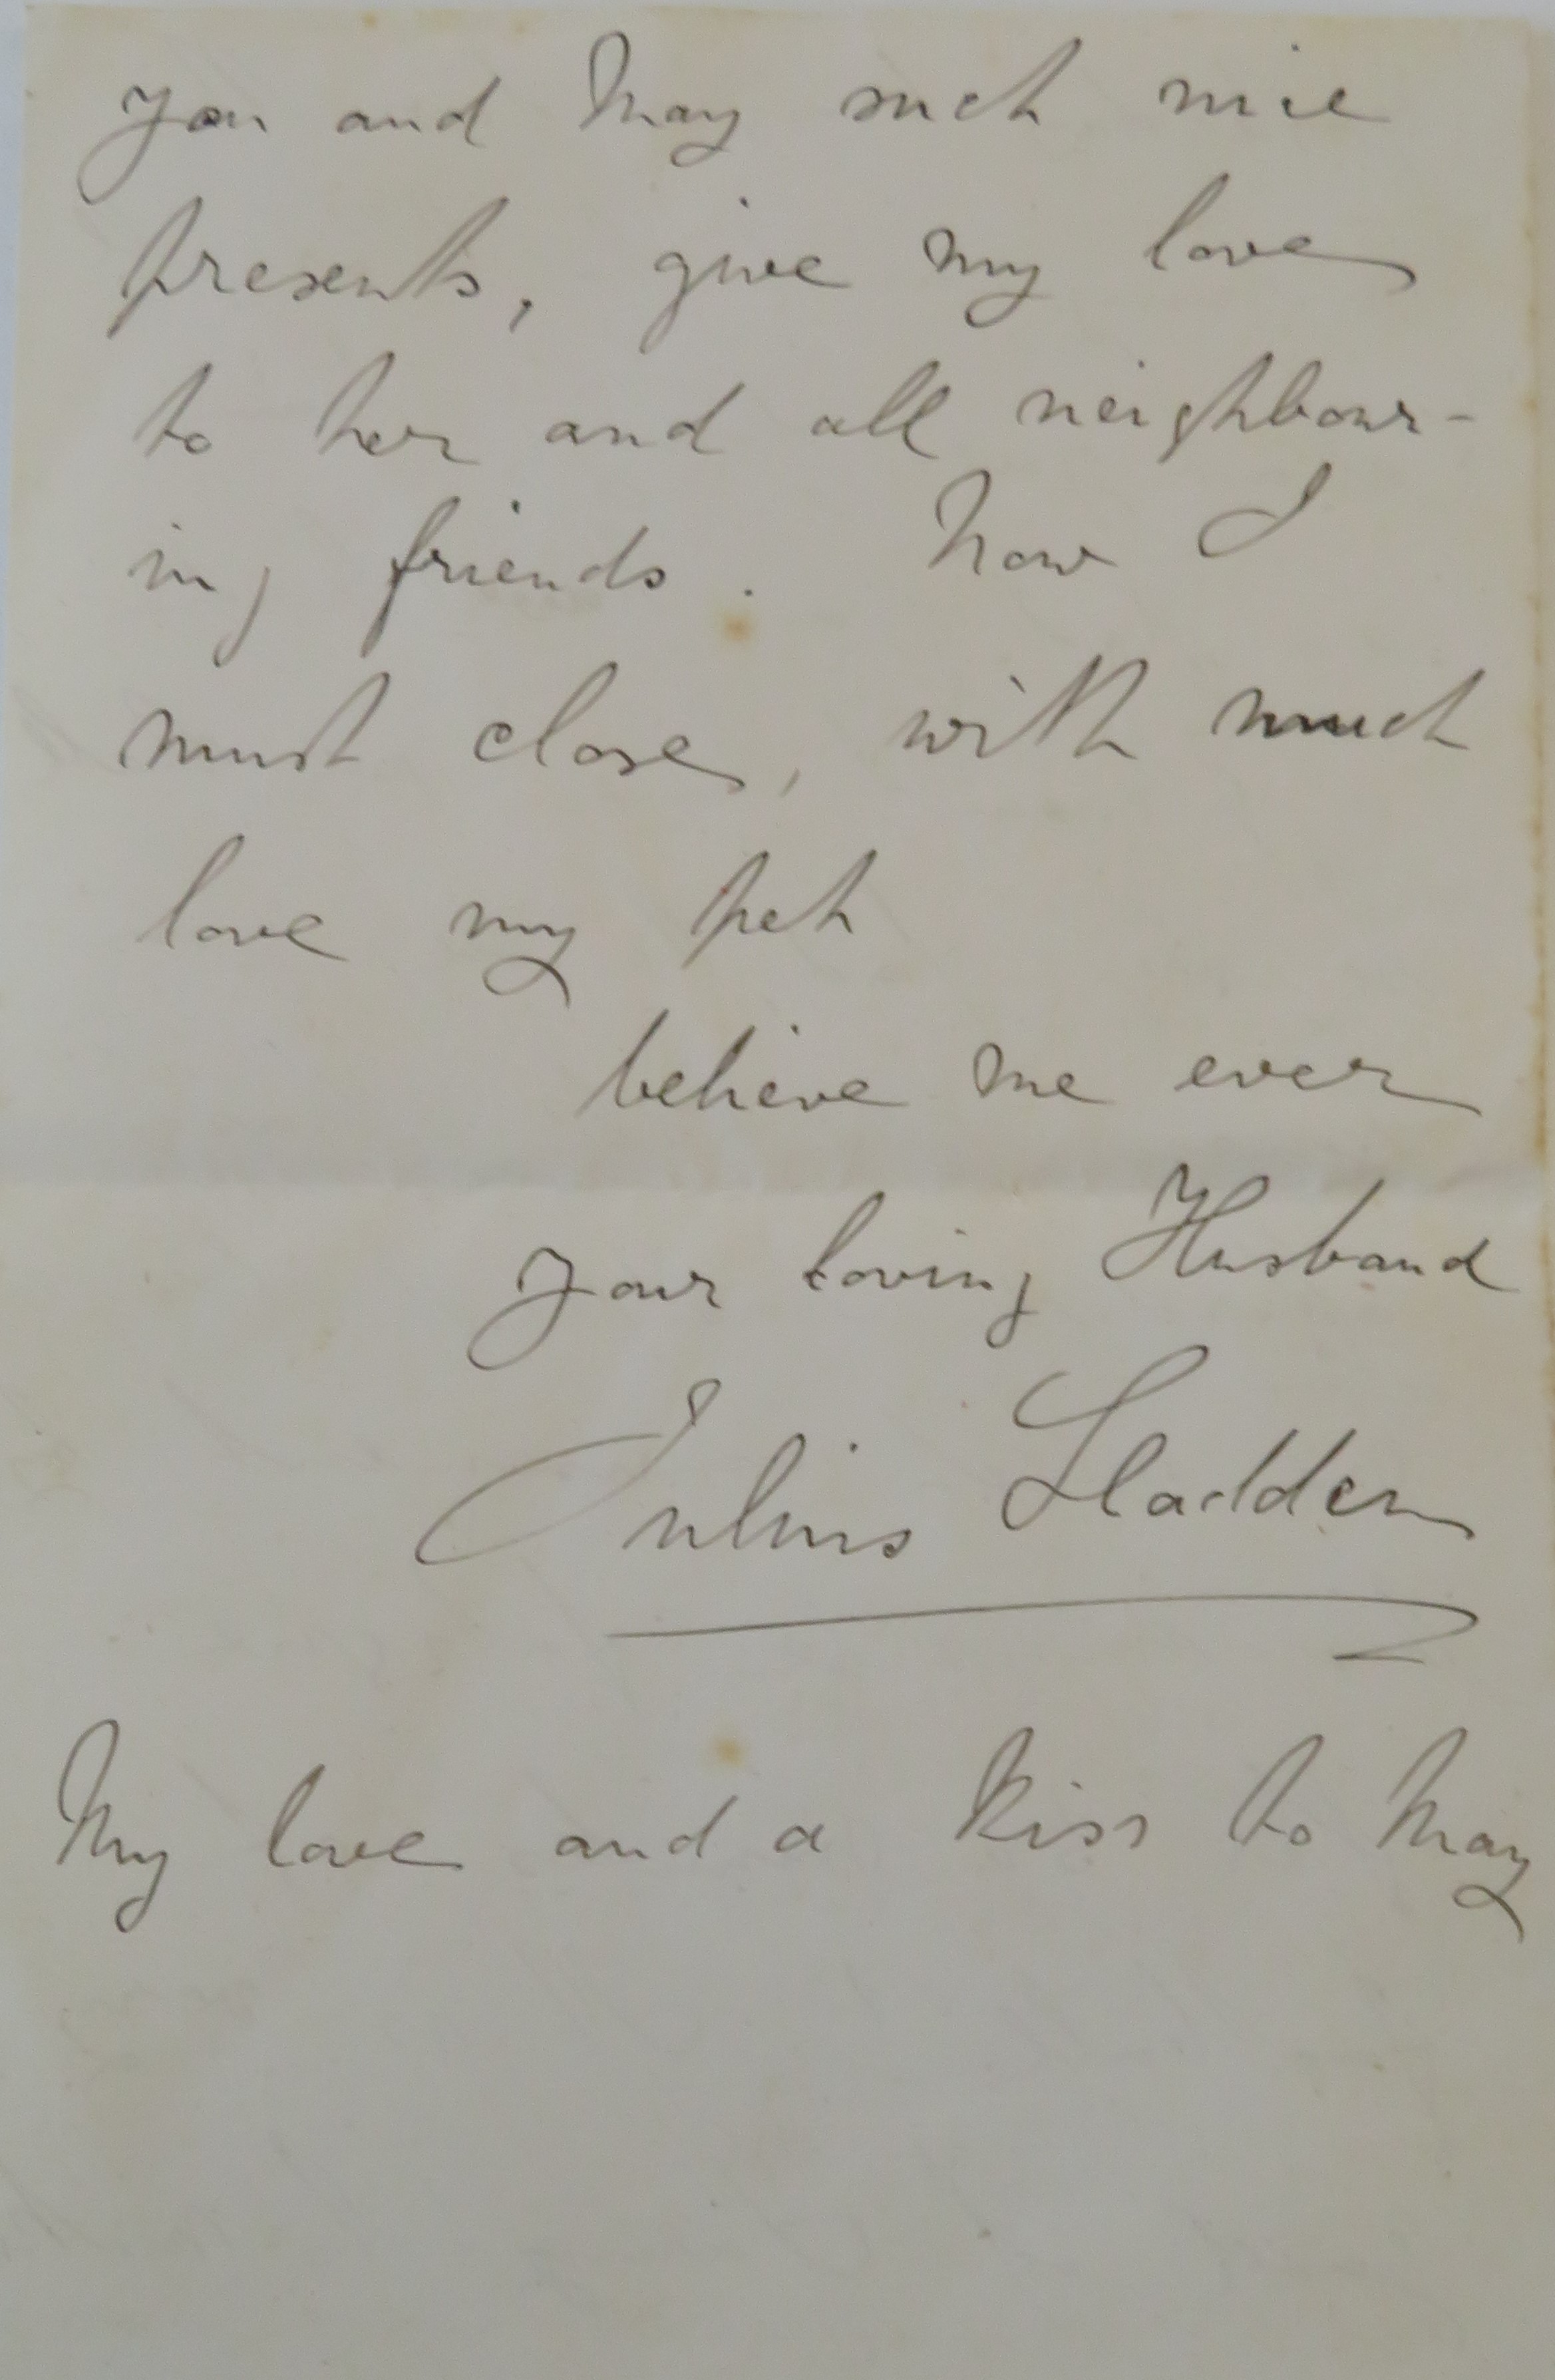 you and May such nice
presents, give my love
to her and all neighbour-
ing friends. Now I
must close, with much
love my pet
believe me ever
your loving Husband
Julius Sladden
My love and a kiss to May